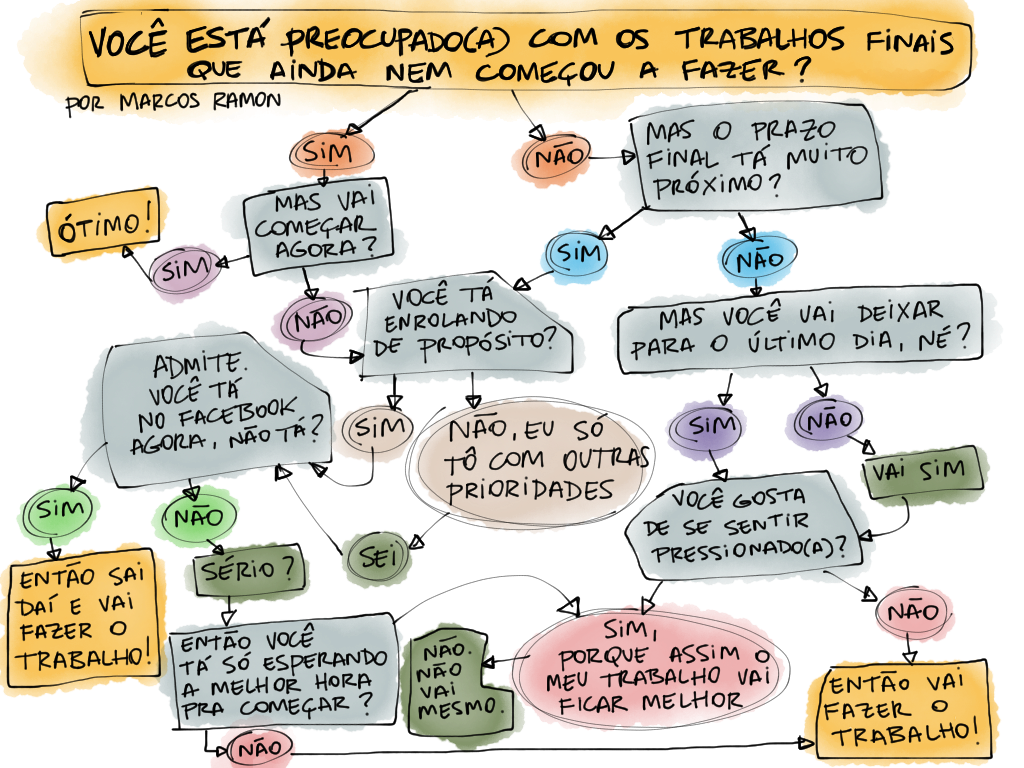 VOCÊ ESTÁ PREOCUPADO(A) COM OS TRABALHOS FINAIS
QUE AINDA NEM COMEÇOU A FAZER?
POR MARCOS RAMON
SIM
NÃO
MAS O PRAZO
FINAL TÁ MUITO
PRÓXIMO?
MAS VAI
COMEÇAR
AGORA?
ÓTIMO!
SIM
NÃO
SIM
NÃO
VOCÊ TÁ
ENROLANDO
DE PROPÓSITO?
MAS VOCÊ VAI DEIXAR
PARA O ÚLTIMO DIA, NÉ?
ADMITE.
VOCÊ TÁ
NO FACEBOOK
AGORA, NÃO TÁ?
SIM
NÃO, EU SÓ
TÔ COM OUTRAS
PRIORIDADES
SIM
NÃO
VAI SIM
VOCÊ GOSTA
DE SE SENTIR
PRESSIONADO(A)?
SIM
NÃO
SEI
SÉRIO?
ENTÃO SAI
DAÍ E VAI
FAZER O
TRABALHO!
ENTÃO VOCÊ
TÁ SÓ ESPERANDO
A MELHOR HORA
PRA COMEÇAR?
NÃO.
NÃO
VAI
MESMO.
SIM,
PORQUE ASSIM O
MEU TRABALHO VAI
FICAR MELHOR
NÃO
ENTÃO VAI
FAZER O
TRABALHO!
NÃO